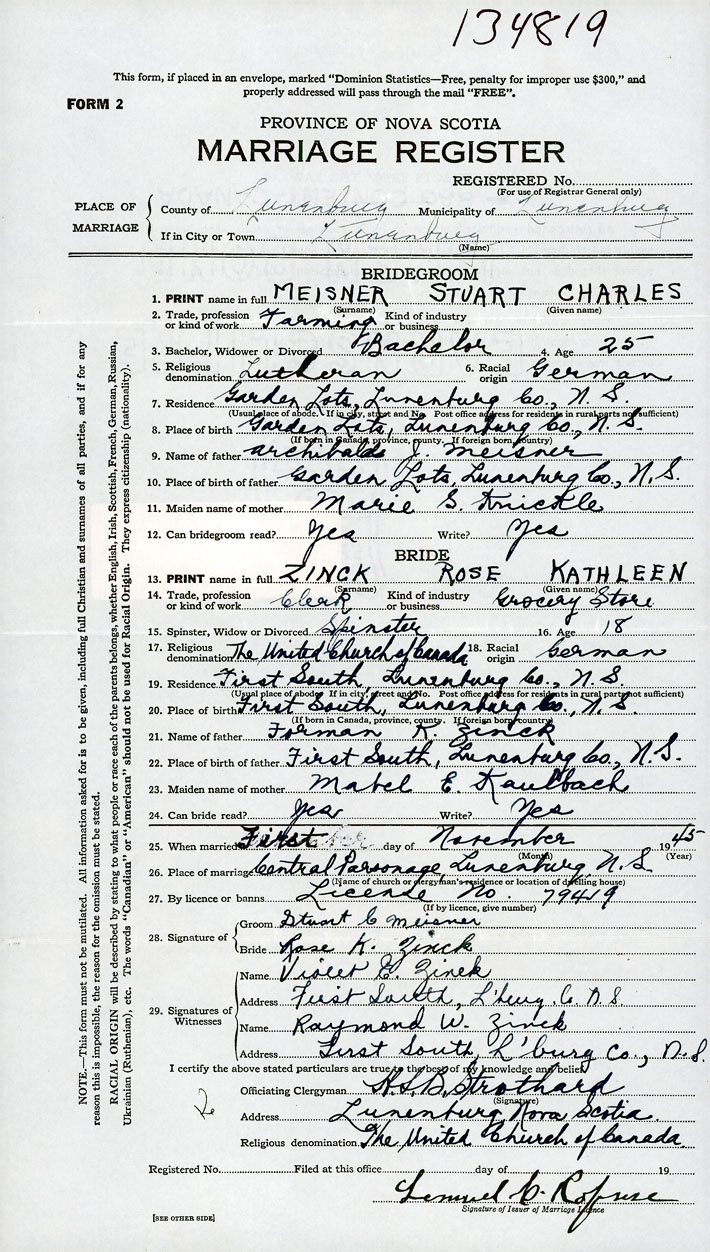 134819
This form, if placed in an envelope, marked "Dominion Statistics—Free, penalty for improper use $300," and
properly addressed will pass through the mail "FREE".
FORM 2
PROVINCE OF NOVA SCOTIA
MARRIAGE REGISTER
REGISTERED No.
(For use of Registrar General only)
PLACE OF MARRIAGE
County of Lunenburg Municipality of Lunenburg
If in City or Town Lunenburg
(Name)
BRIDEGROOM
1. PRINT name in full MEISNER STUART CHARLES
(Surname) (Given name)
2. Trade, profession or kind of work Farming Kind of industry or business
3. Bachelor, Widower or Divorced Bachelor 4. Age 25
5. Religious denomination Lutheran 6. Racial origin German
7. Residence Garden Lots, Lunenburg Co., N. S.
(Usual place of abode. If in city, street and No. Post office address for residents in rural parts not sufficient)
8. Place of birth Garden Lots, Lunenburg Co., N. S.
(If born in Canada, province, county. If foreign born, country)
9. Name of father Archibald J. Meisner
10. Place of birth of father Garden Lots, Lunenburg Co., N. S.
11. Maiden name of mother Marie S. Knickle
12. Can bridegroom read? Yes Write? Yes
BRIDE
13. PRINT name in full ZINCK ROSE KATHLEEN
(Surname) (Given name)
14. Trade, profession or kind of work Clerk Kind of industry or business Grocery Store
15. Spinster, Widow or Divorced Spinster 16. Age 18
17. Religious denomination The United Church of Canada 18. Racial origin German
19. Residence First South, Lunenburg Co., N. S.
(Usual place of abode. If in city, street and No. Post office address for residents in rural part not sufficient)
20. Place of birth First South, Lunenburg Co., N. S.
(If born in Canada, province, county. If foreign born country)
21. Name of father Forman K. Zinck
22. Place of birth of father First South, Lunenburg Co., N. S.
23. Maiden name of mother Mabel E. Kaulbach
24. Can bride read? Yes Write? Yes
25. When married First day of November 1945
(Month) (Year)
26. Place of marriage Central Parsonage, Lunenburg, N. S.
(Name of church or clergyman's residence or location of dwelling house)
27. By licence or banns License No. 79419
(If by licence, give number)
28. Signature of
Groom Stuart C Meisner
Bride Rose K. Zinck
29. Signatures of Witnesses
Name Violet E. Zinck
Address First South, L'burg. Co. N. S.
Name Raymond W. Zinck
Address First South, L'burg Co., N. S.
I certify the above stated particulars are true to the best of my knowledge and belief.
Officiating Clergyman
(Signature)
Address Lunenburg, Nova Scotia.
Religious denomination The United Church of Canada
Registered No. Filed at this office day of 19
Lemuel
Signature of Issuer of Marriage Licence
[SEE OTHER SIDE]
NOTE.—This form must not be mutilated. All information asked for is to be given, including full Christian and surnames of all parties, and if for any
reason this is impossible, the reason for the omission must be stated.
RACIAL ORIGIN will be described by stating to what people or race each of the parents belongs, whether English, Irish, Scottish, French, German, Russian,
Ukrainian (Ruthenian), etc. The words "Canadian" or "American" should not be used for Racial Origin. They express citizenship (nationality).